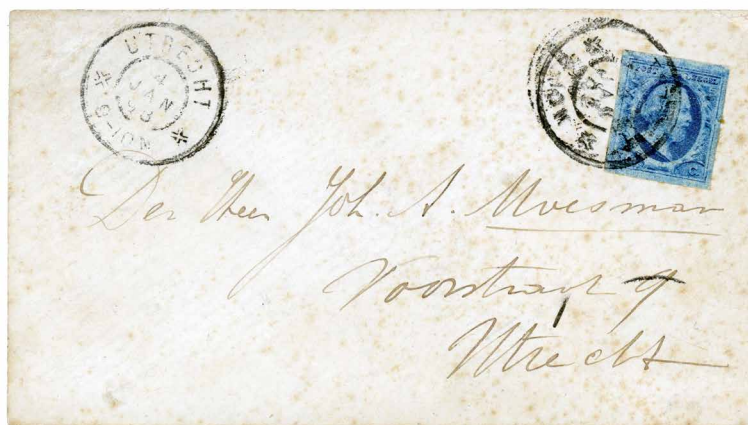 UTRECHT
4
JAN
Den Heer Joh. A. Moesman
Voorstraat 9
Utrecht